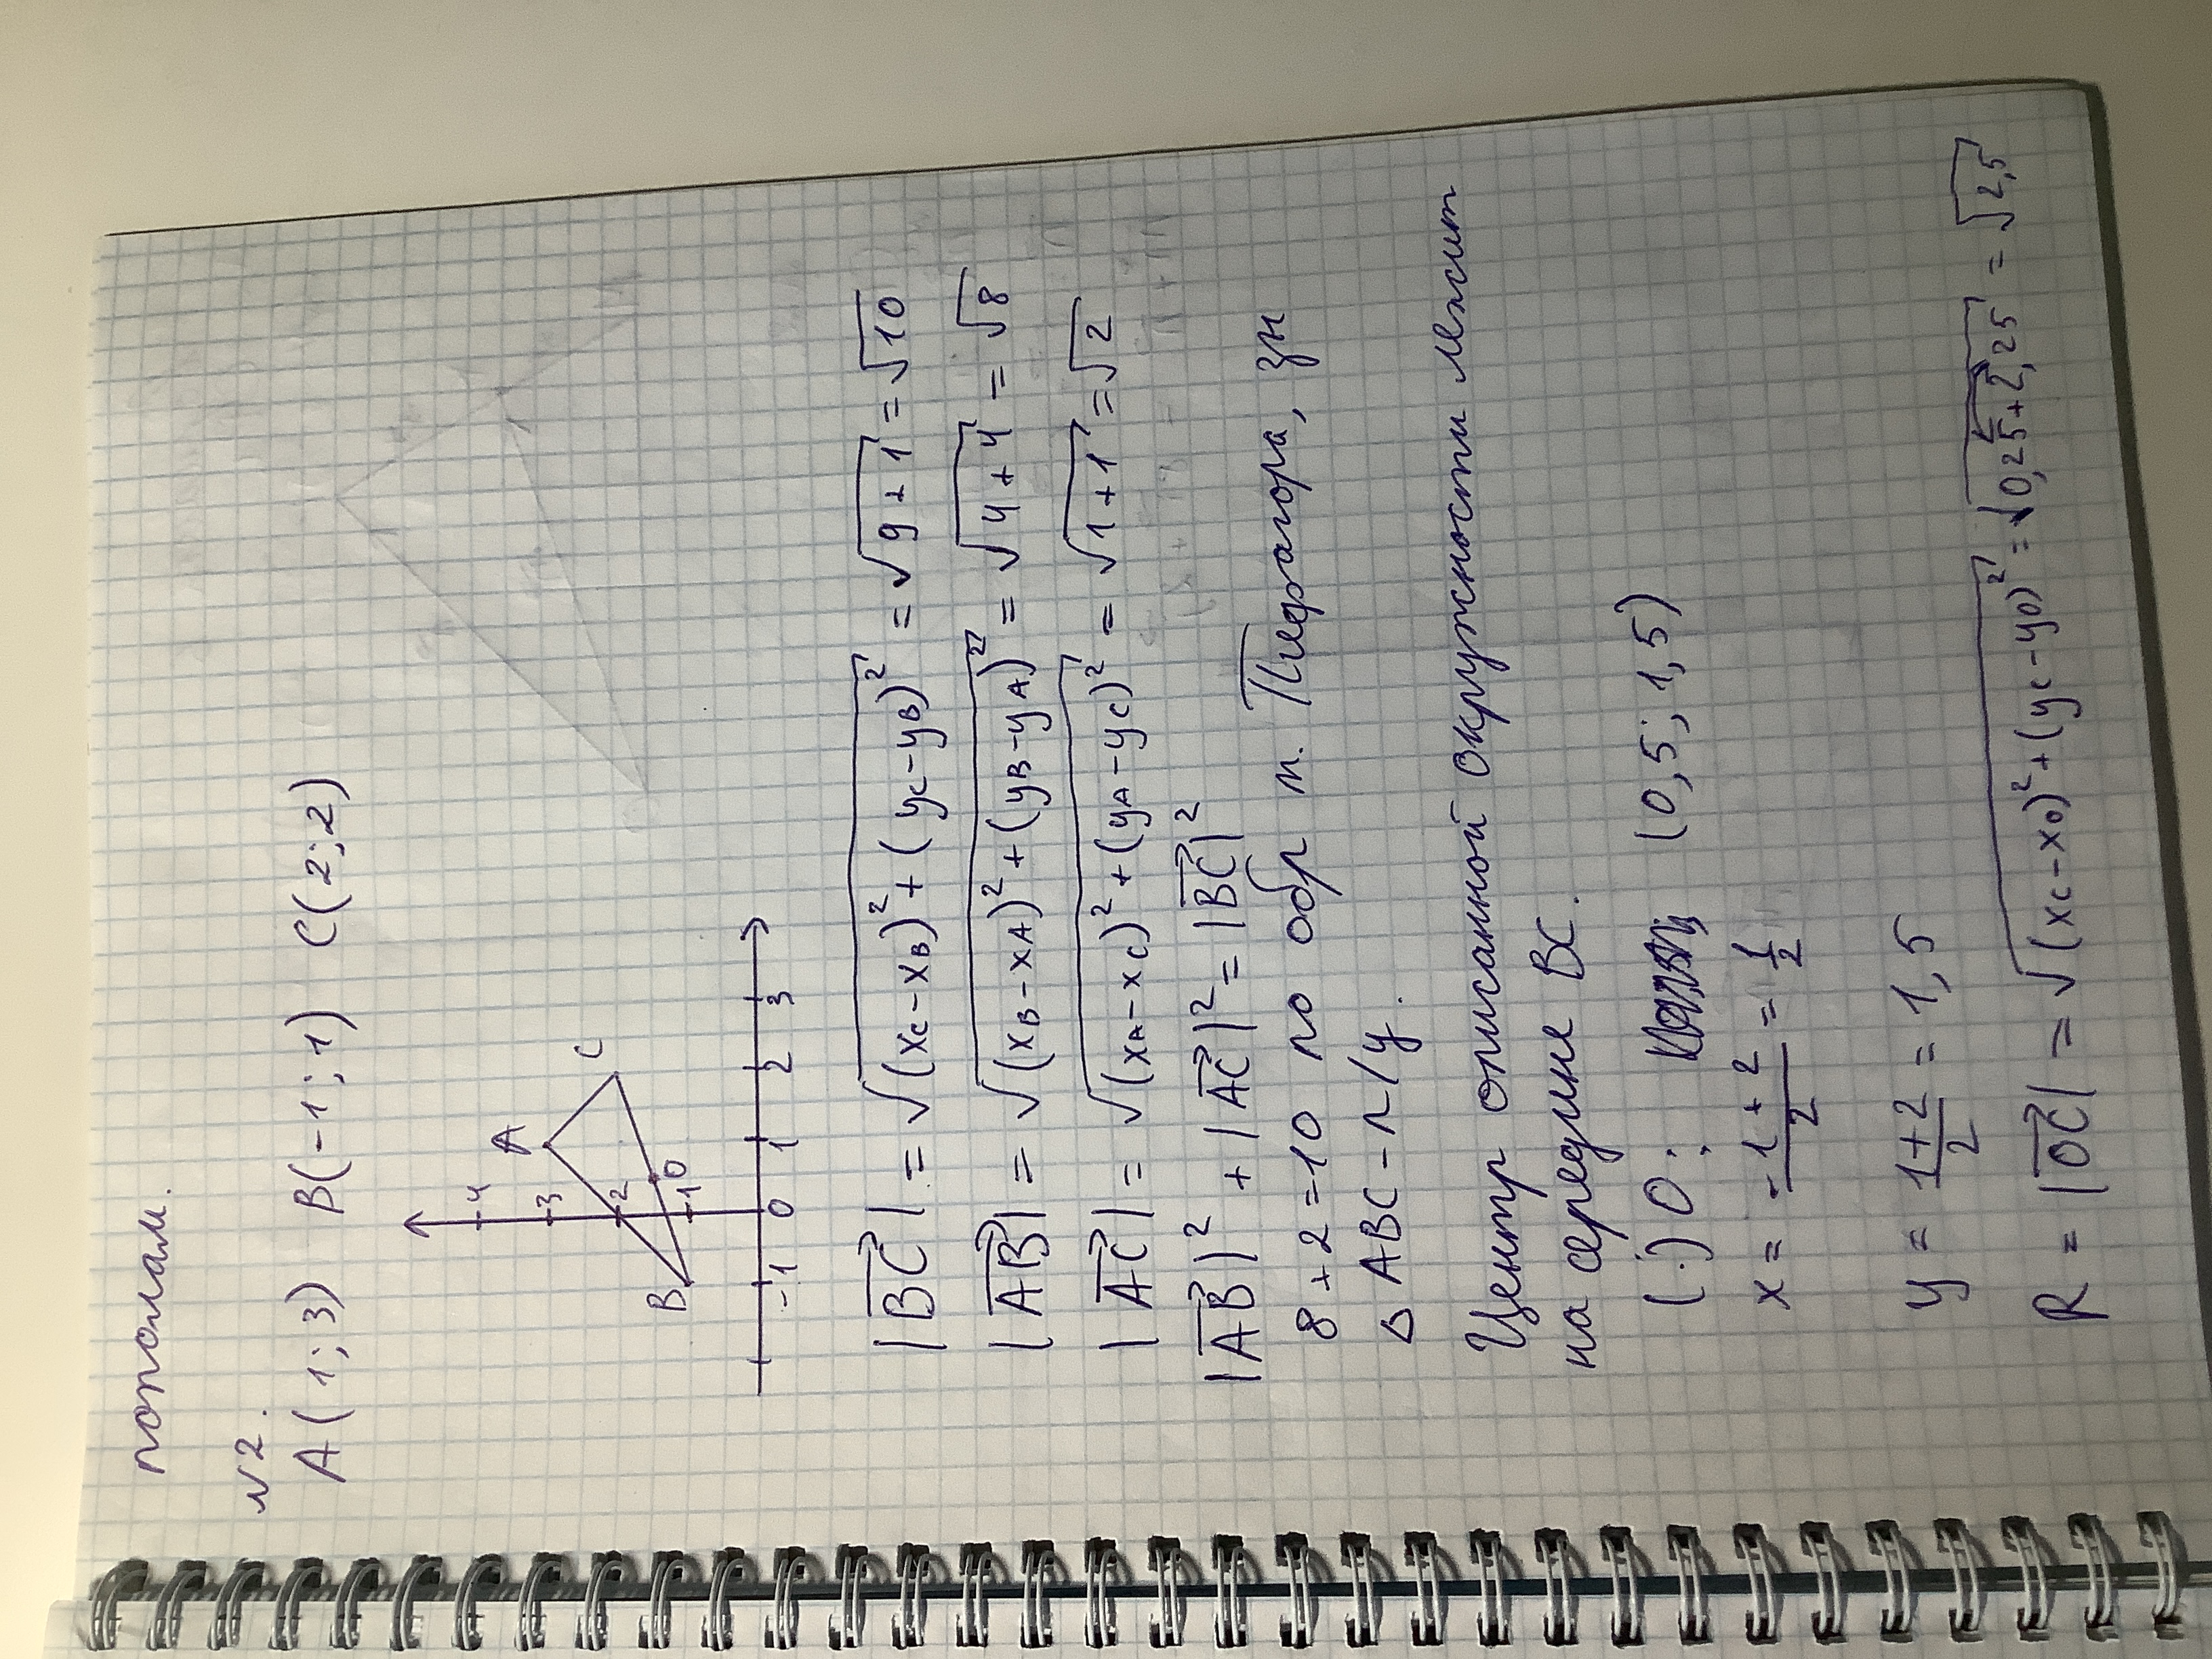 пополам.
№2.
A(1;3) B(-1;1) C(2;2)
4
A
3
C
2
B
O
1
-1 0 1 2 3
|BC| = √((xC-xB)²+(yC-yB)²) = √(9+1) = √10
|AB| = √((xB-xA)²+(yB-yA)²) = √(4+4) = √8
|AC| = √((xA-xC)²+(yA-yC)²) = √(1+1) = √2
|AB|² + |AC|² = |BC|²
8+2=10 по обр т. Пифагора, зн
△ABC-п/у.
Центр описанной окружности лежит
на середине BC.
(·)O: (0,5;1,5)
x = (-1+2)/2 = 1/2
y = (1+2)/2 = 1,5
R = |OC| = √((xC-xO)²+(yC-yO)²) = √(0,25+2,25) = √2,5